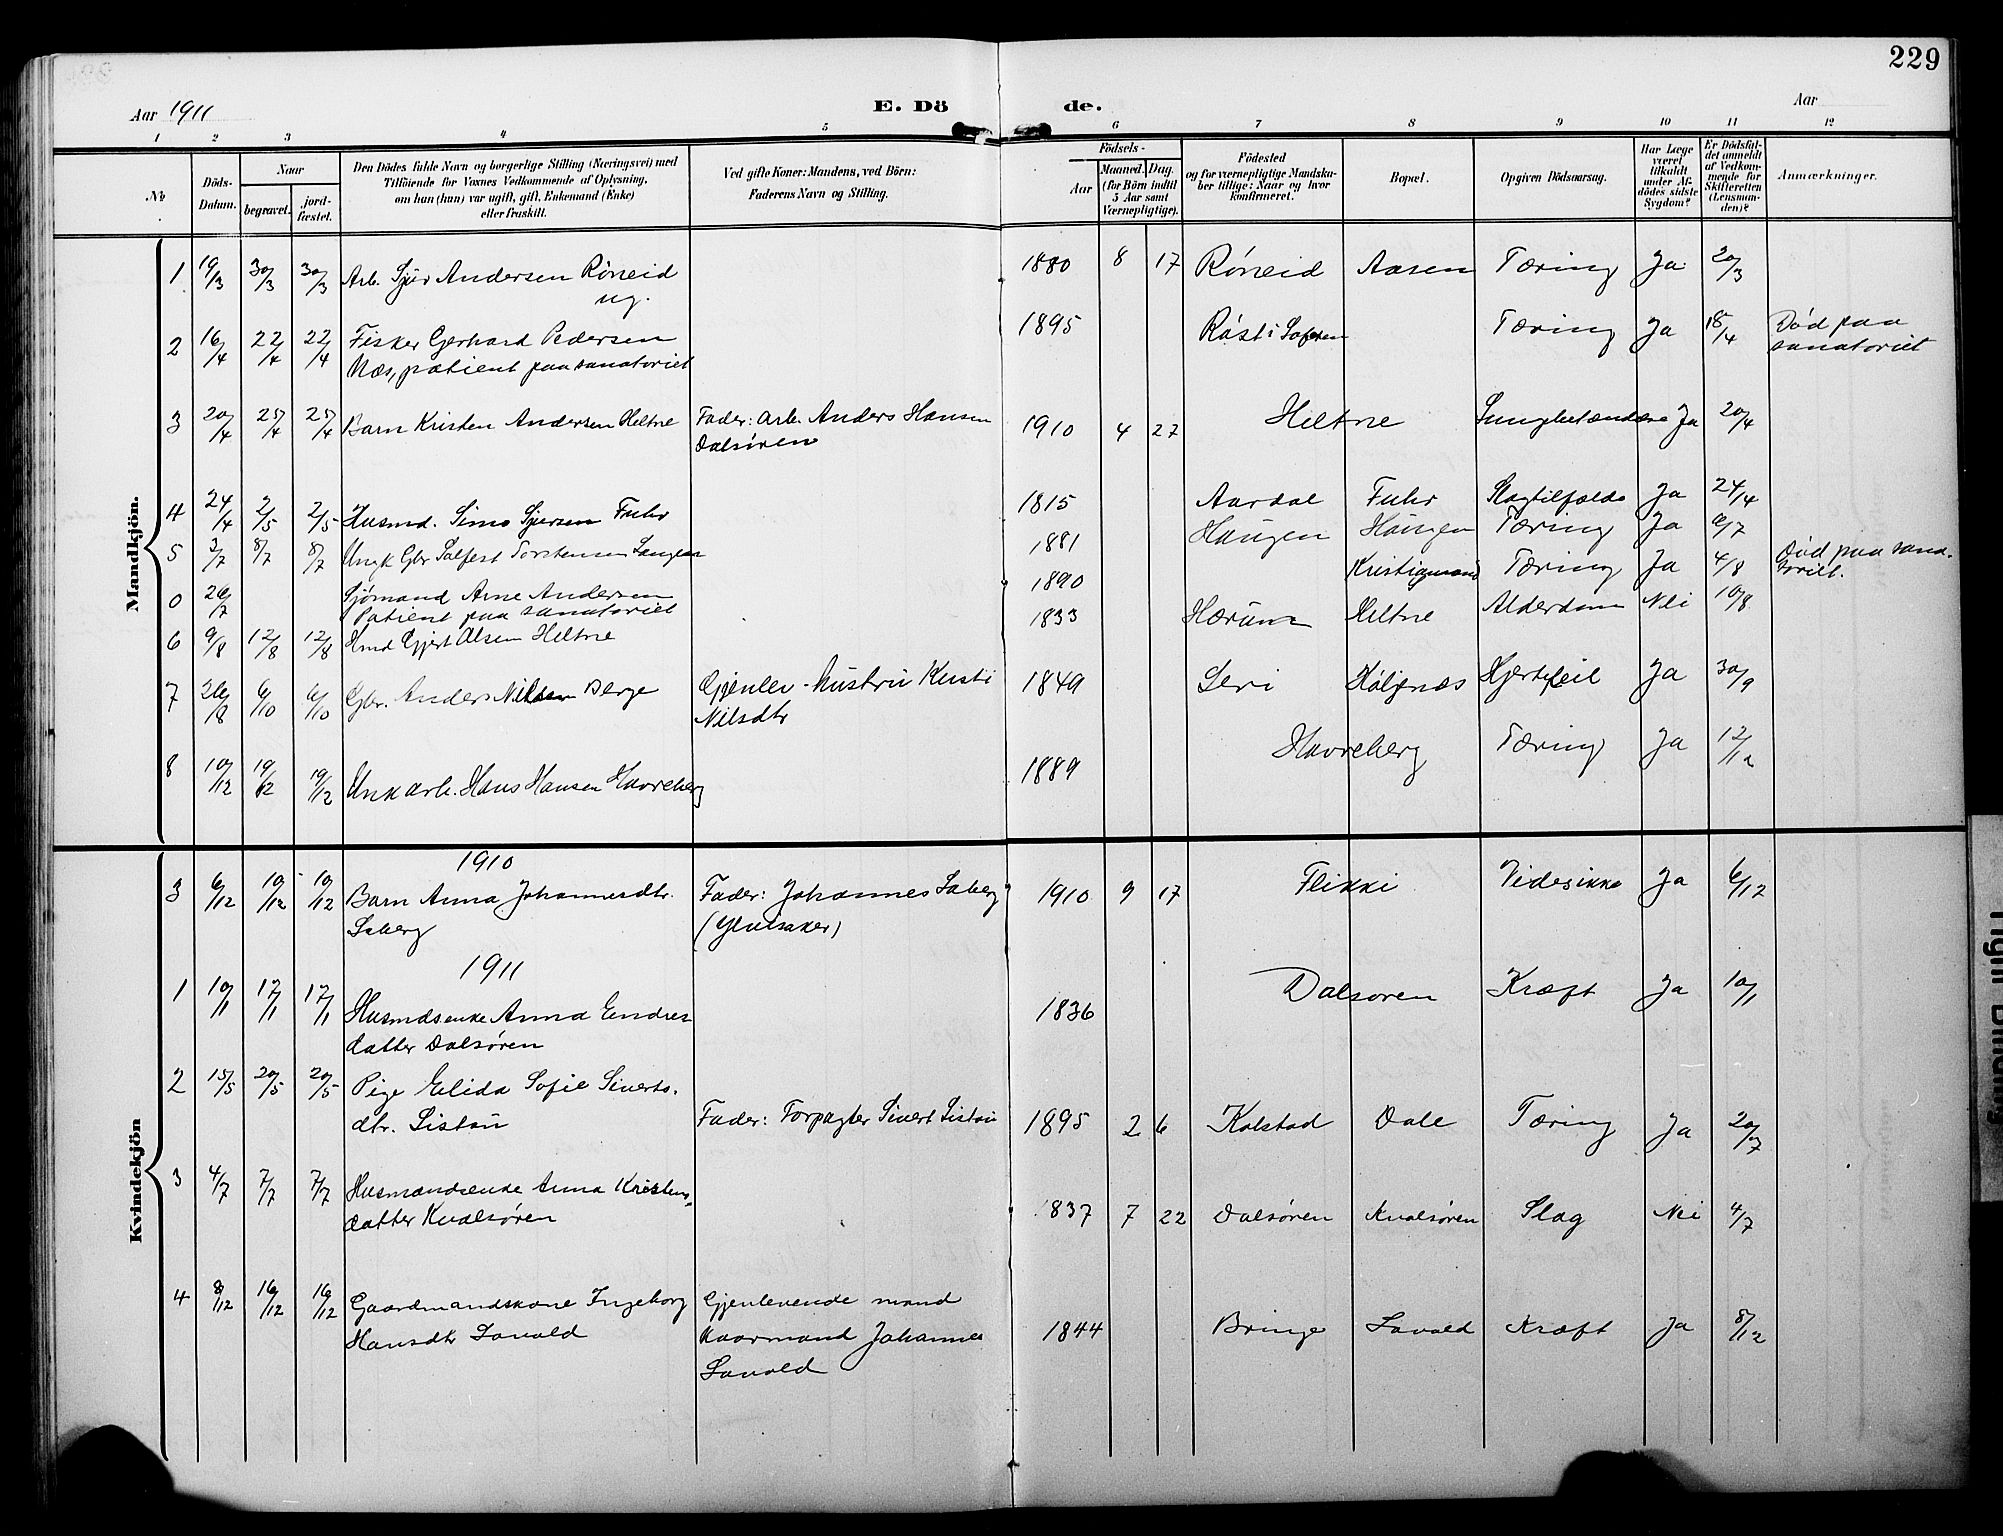 229
Aar 1911
E. Dö de.
Aar
1 2 3 4 5 6 7 8 9 10 11 12
No
Döds-Datum.
Naar
begravet.
jord-fæstet.
Den Dödes fulde Navn og borgerlige Stilling (Næringsvei) med
Tilföiende for Voxnes Vedkommende af Oplysning,
om han (hun) var ugift, gift, Enkemand (Enke)
eller fraskilt.
Ved gifte Koner: Mandens, ved Börn:
Faderens Navn og Stilling.
Födsels-
Aar
Maaned. Dag.
(for Börn indtil
5 Aar samt
Værnepligtige).
Födested
og for værnepligtige Mandska-
ber tillige: Naar og hvor
konfirmeret.
Bopæl.
Opgiven Dödsaarsag.
Har Læge
været
tilkaldt
under Af-
dödes sidste
Sygdom?
Er Dödsfal-
det anmeldt
af Vedkom-
mende for
Skifteretten
(Lensman-
den)?
Anmærkninger.
Mandkjön.
1 19/3 30/3 30/3 Arb. Sjur Andersen Røneid 1880 8 17 Røneid Aasen Tæring Ja 20/3
ug.
2 16/4 22/4 22/4 Fisker Gerhard Pedersen 1895 Røst i Lofoten Tæring Ja 18/4 Død paa
Næs, patient paa sanatoriet sanatoriet
3 20/4 25/4 25/4 Barn Kristen Andersen Heltne Fader: arb. Anders Hansen 1910 4 27 Heltne Ja 20/4
Dalsøren
4 24/4 2/5 2/5 Husmd. Simo Sjursen Fuhr 1815 Aardal Fuhr Slagtilfælde Ja 24/4
5 3/7 8/7 8/7 Ungk Gbr Torstensen 1881 Haugen Haugen Tæring Ja 6/7
0 26/7 Sjømand Arne Andersen 1890 Tæring Ja 4/8 Død paa sana-
Patient paa sanatoriet toriet.
6 9/8 12/8 12/8 Hmd Gjert Olsen Heltne 1833 Heltne Alderdom Nei 10/8
7 6/10 6/10 Gbr. Anders Nilsen Berge Gjenlev. hustru Kristi 1849 Leri Kålgnæs Hjertefeil Ja 30/9
Nilsdtr
8 10/12 19/12 19/12 Unk arb. Hans Hansen Havreberg 1889 Havreberg Tæring Ja 12/12
Kvindekjön
1910
3 6/12 10/12 10/12 Barn Anna Johannesdtr. Fader: Johannes Saberg 1910 9 17 Flikki Vides ikke Ja 6/12
Saberg (Ylvisaker)
1911
1 10/1 17/1 17/1 Husmdsenke Anna Endres 1836 Dalsøren Kræft Ja 10/1
datter Dalsøren
2 15/5 20/5 20/5 Pige Elida Sofie Siverts-
dtr. Listøu Fader: Forpagter Sivert Listøu 1895 2 6 Kolstad Dale Tæring Ja 20/7
3 4/7 7/7 7/7 Husmandsenke Anna Kristens-
datter Kvalsøren 1837 7 22 Dalsøren Kvalsøren Slag Nei 4/7
4 8/12 16/12 16/12 Gaardmandskone Ingeborg Gjenlevende mand
Hansdtr Lavold Kaarmand Johannes 1844 Bringe Lavold Kræft Ja 8/12
Lavold
Tight Binding